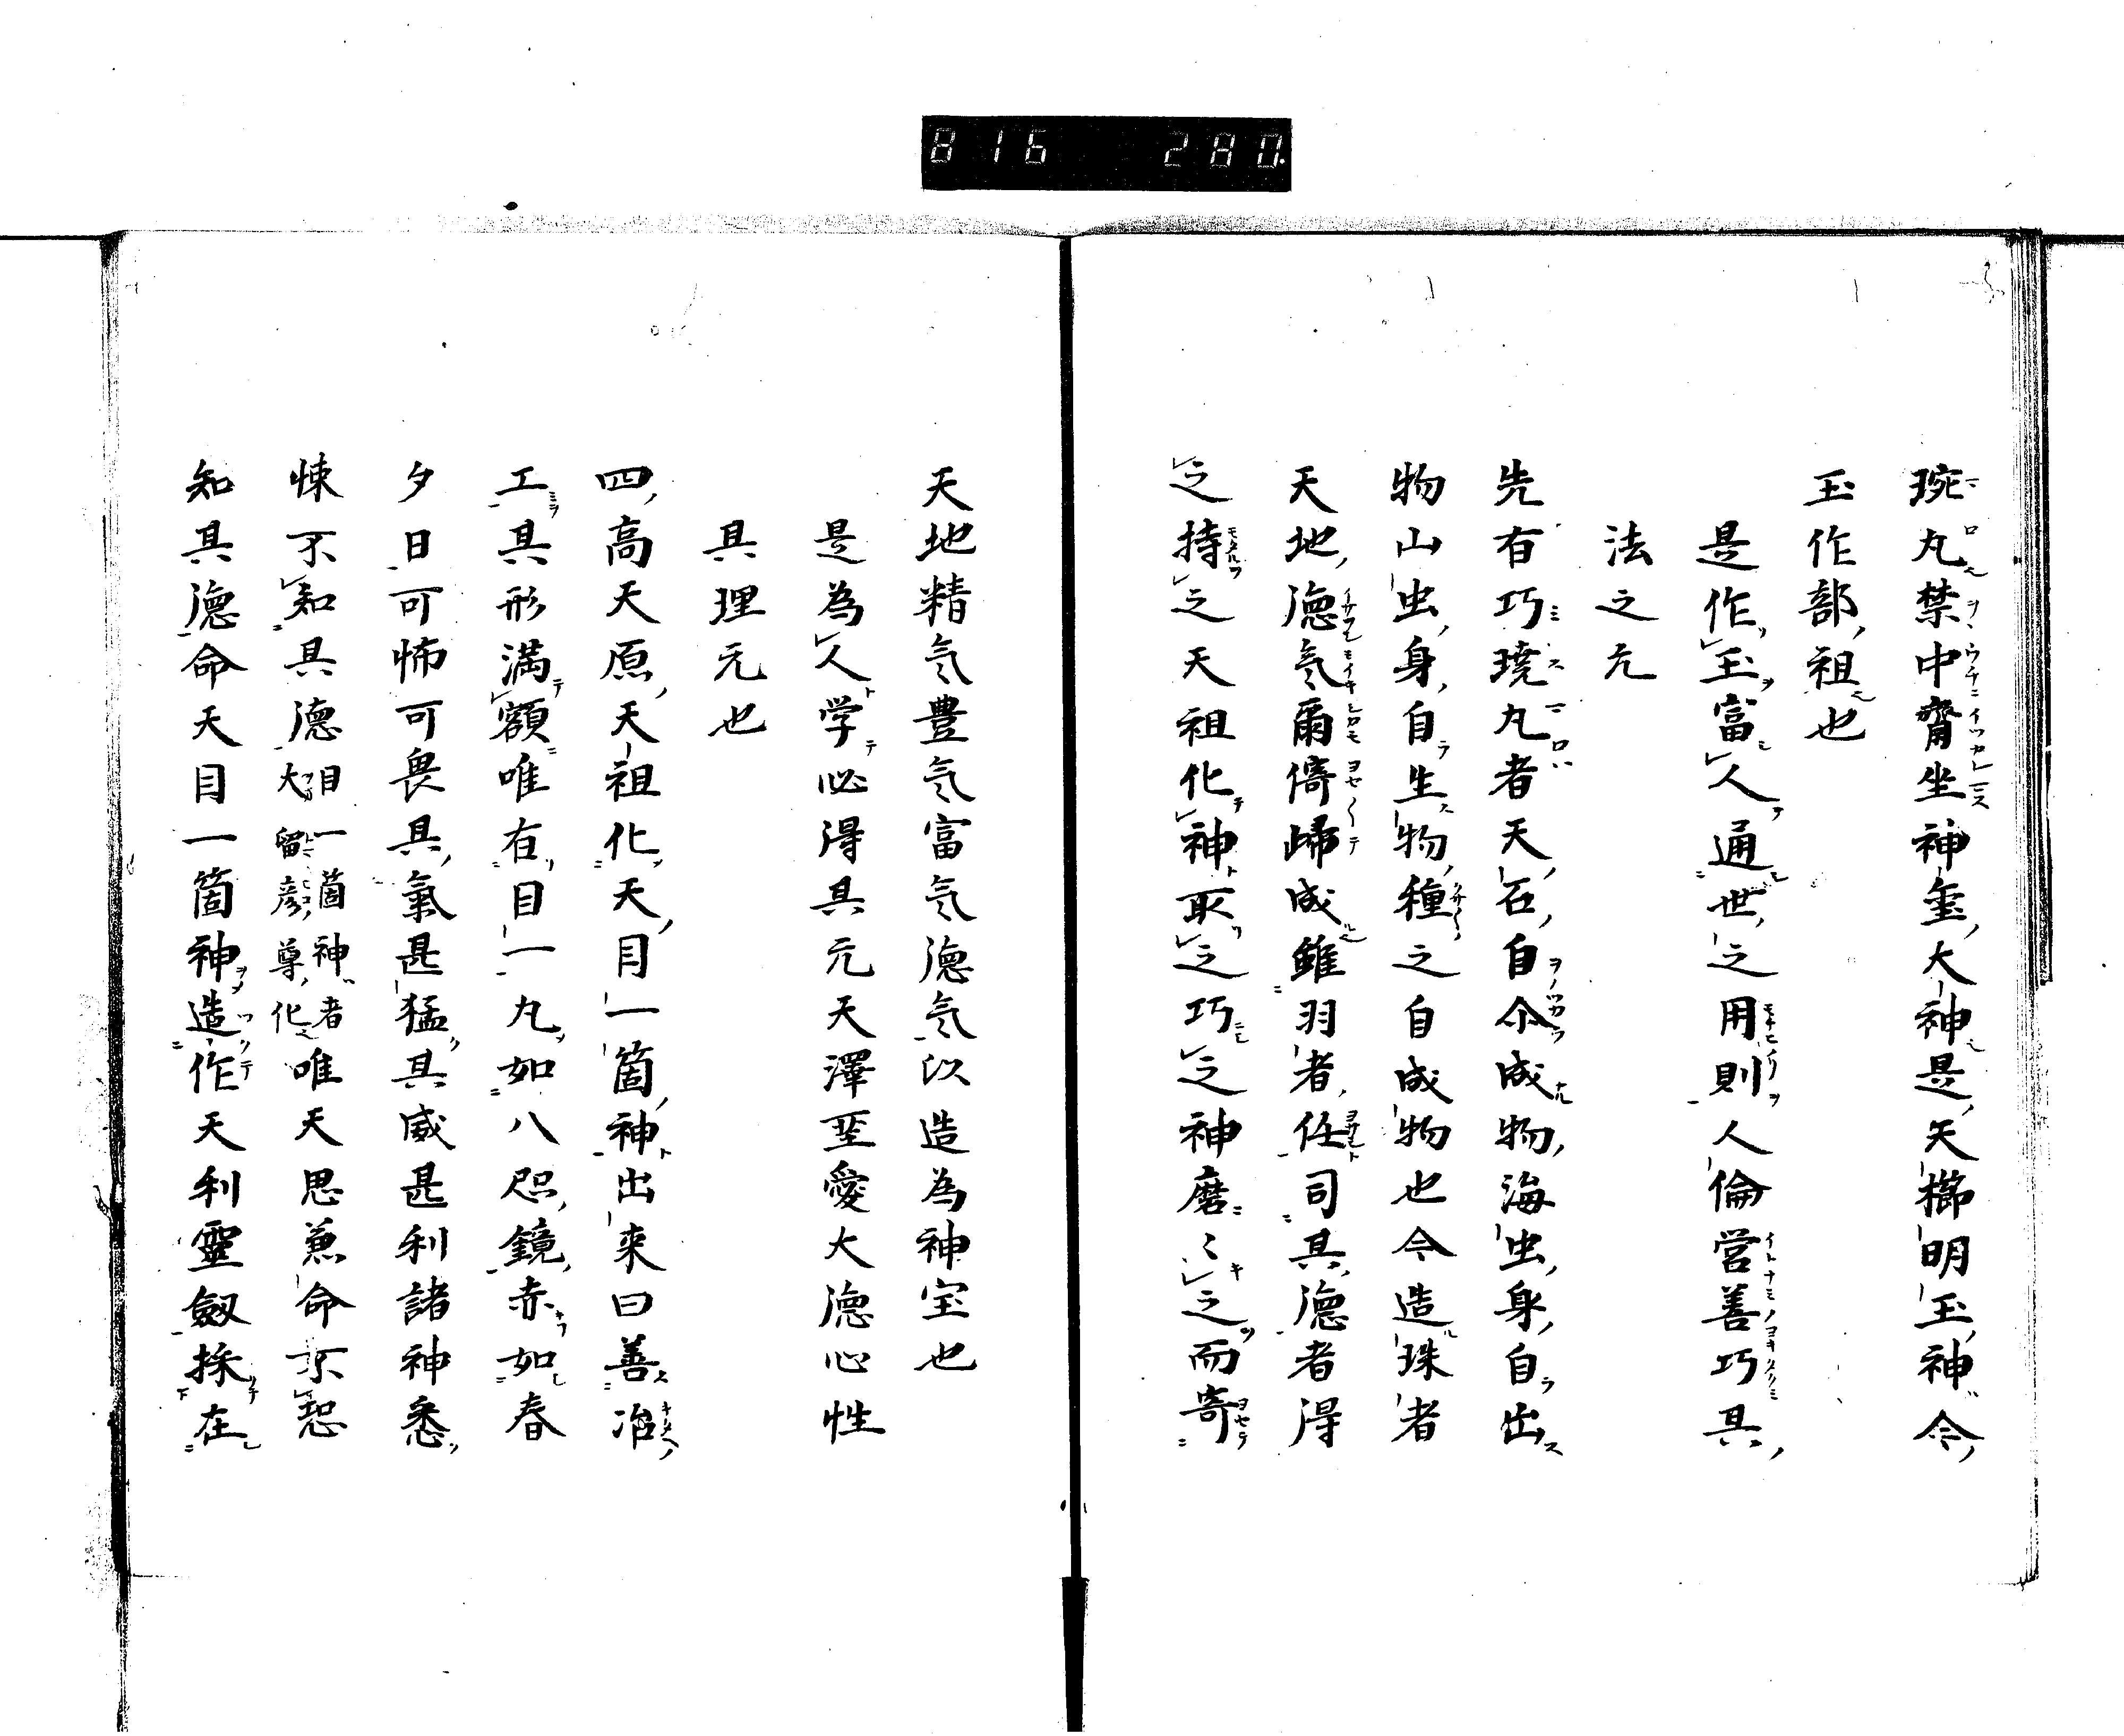 816 280
琬丸禁中齋坐神璽大神是天櫛明玉神令
玉作部祖也
是作玉富人通世之用則人倫営善巧具
法之元
先有巧琓丸者天石自尒成物海虫身自出
物山虫身自生物種之自成物也令造珠者
天地德氣爾倚歸成雖羽者任司其德者得
之持之天祖化神取之巧之神磨〻之而寄
天地精気豊気富気德気以造為神宝也
是為人学必得具元天澤至愛大德心性
具理元也
四高天原天祖化天目一箇神出来曰善冶
工具形満額唯有目一丸如八咫鏡赤如春
夕日可怖可畏具氣甚猛其威甚利諸神悉
悚不知具德目一箇神者大留彦尊化唯天思兼命不恕
知具德命天目一箇神造作天利靈劔採在